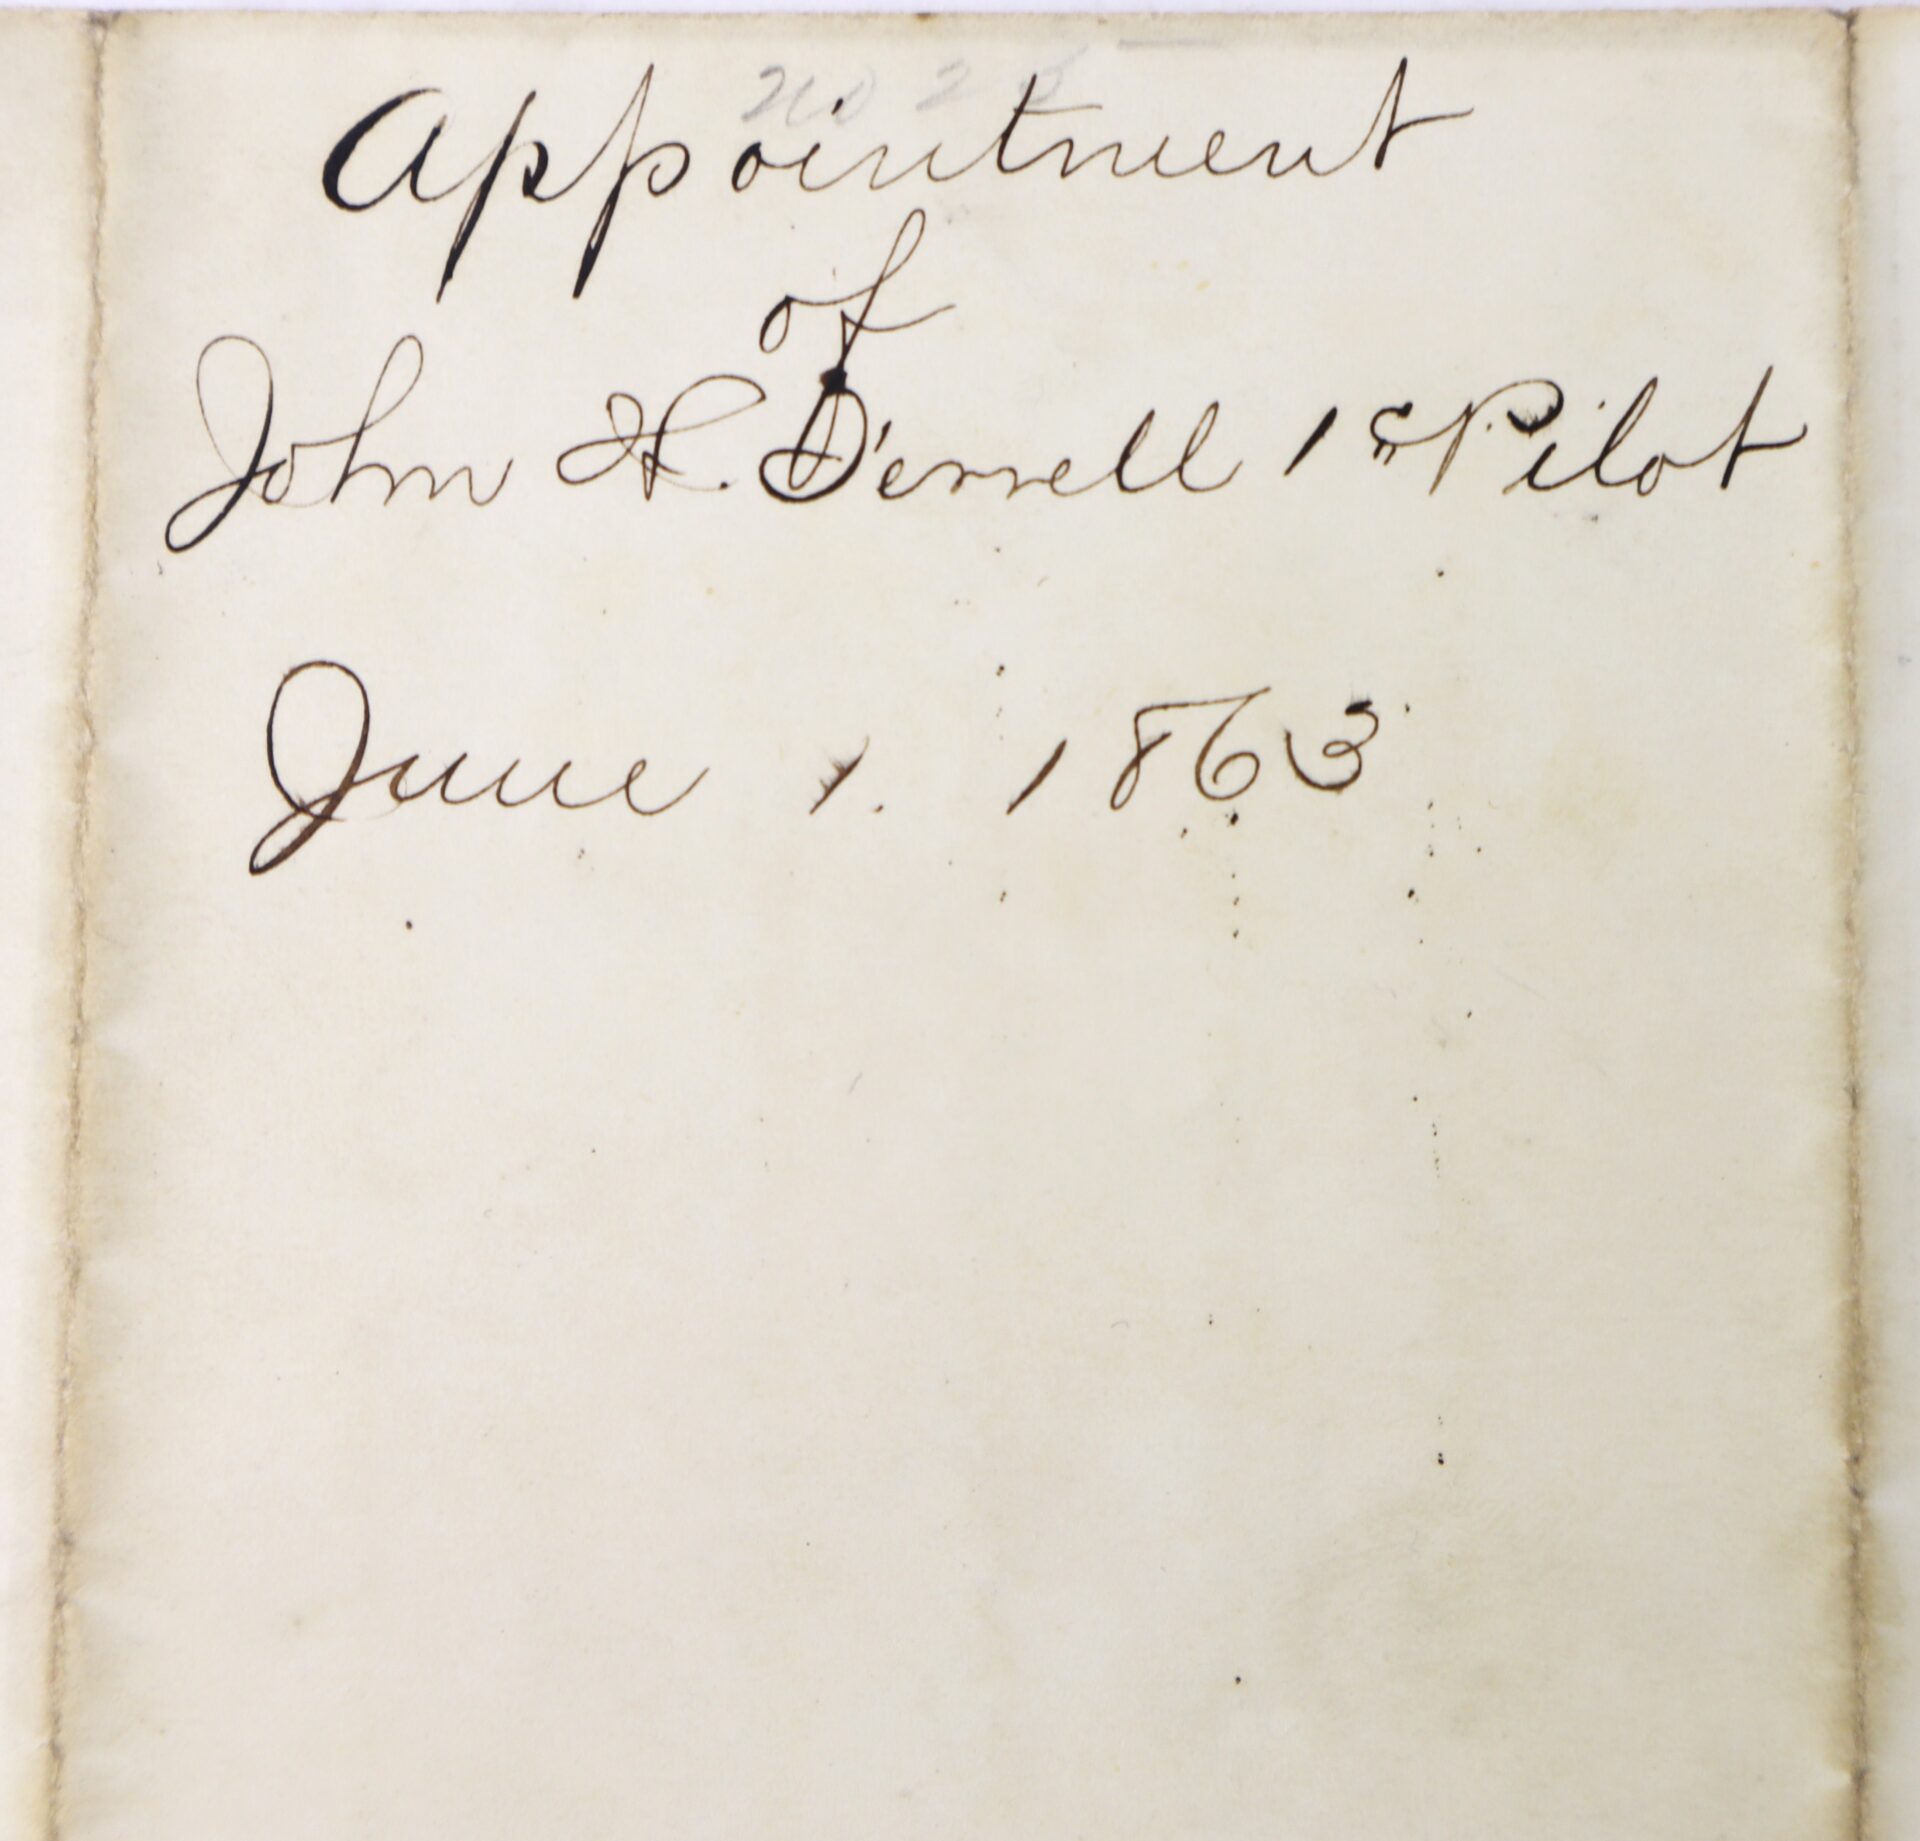 Appointment
of
John H. D'errell 1st Pilot
June 1. 1863